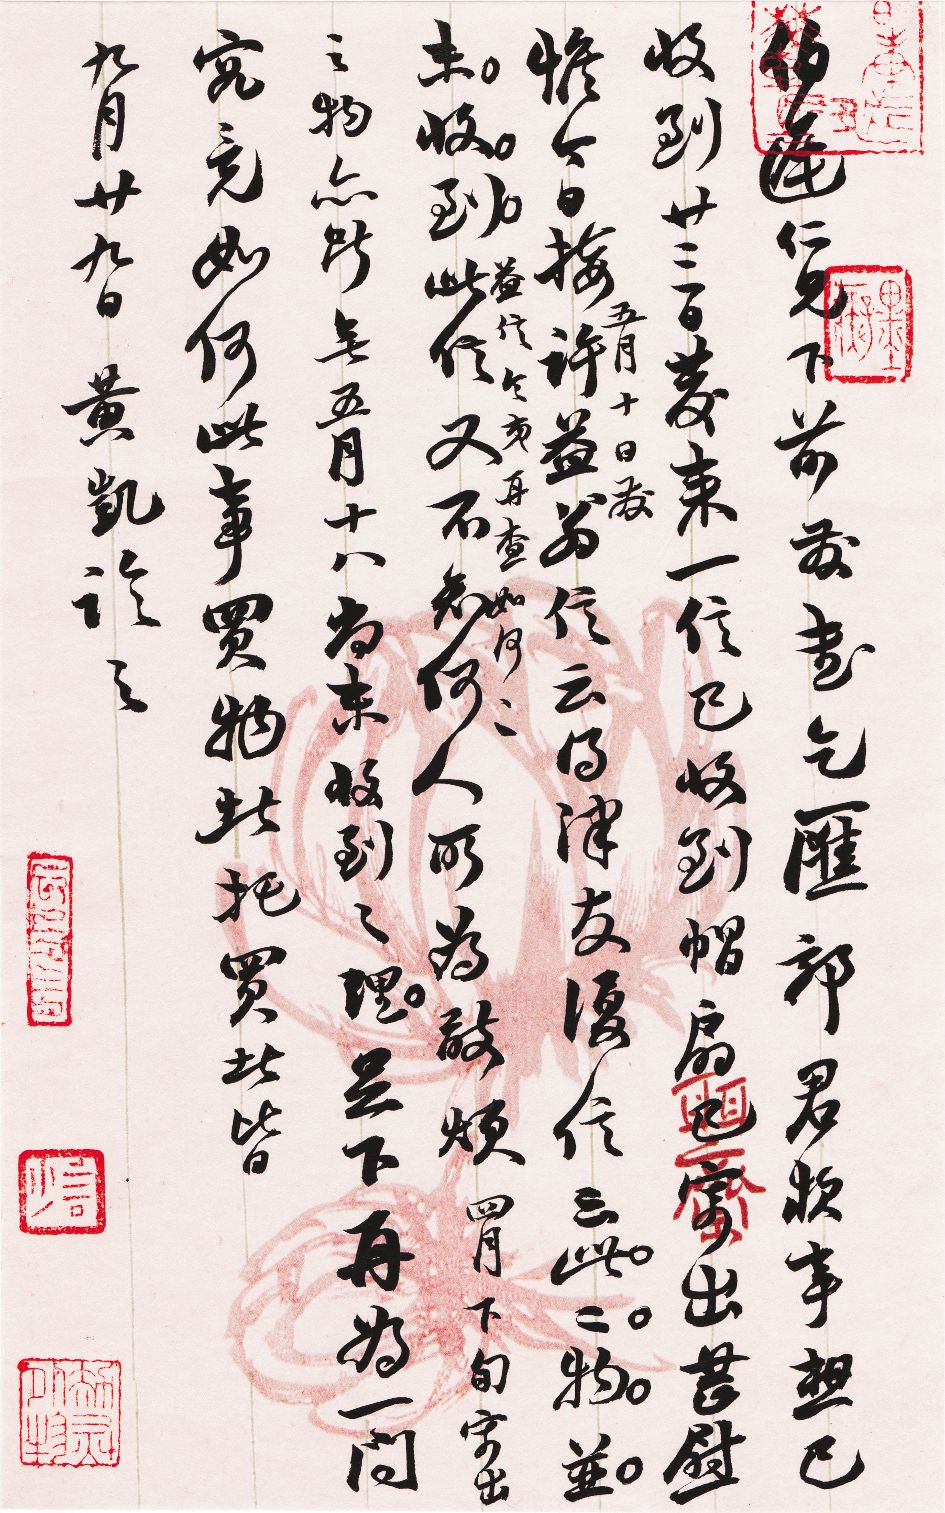 伯蓮仁兄下前發書乞匯郭君款事想已
收到廿三日發來一信已收到帽扇已寄出甚慰
惟今日接許益翁信云得津友復信云此二物並
五月十日發
未收到此信又不知何人所為敬煩四月下旬寄出
益信今亥再查如何二
之物亦斷無五月十八尚未收到之理足下再為一問
究竟如何此事買物少托買少皆
九月廿九日黃凱
墨